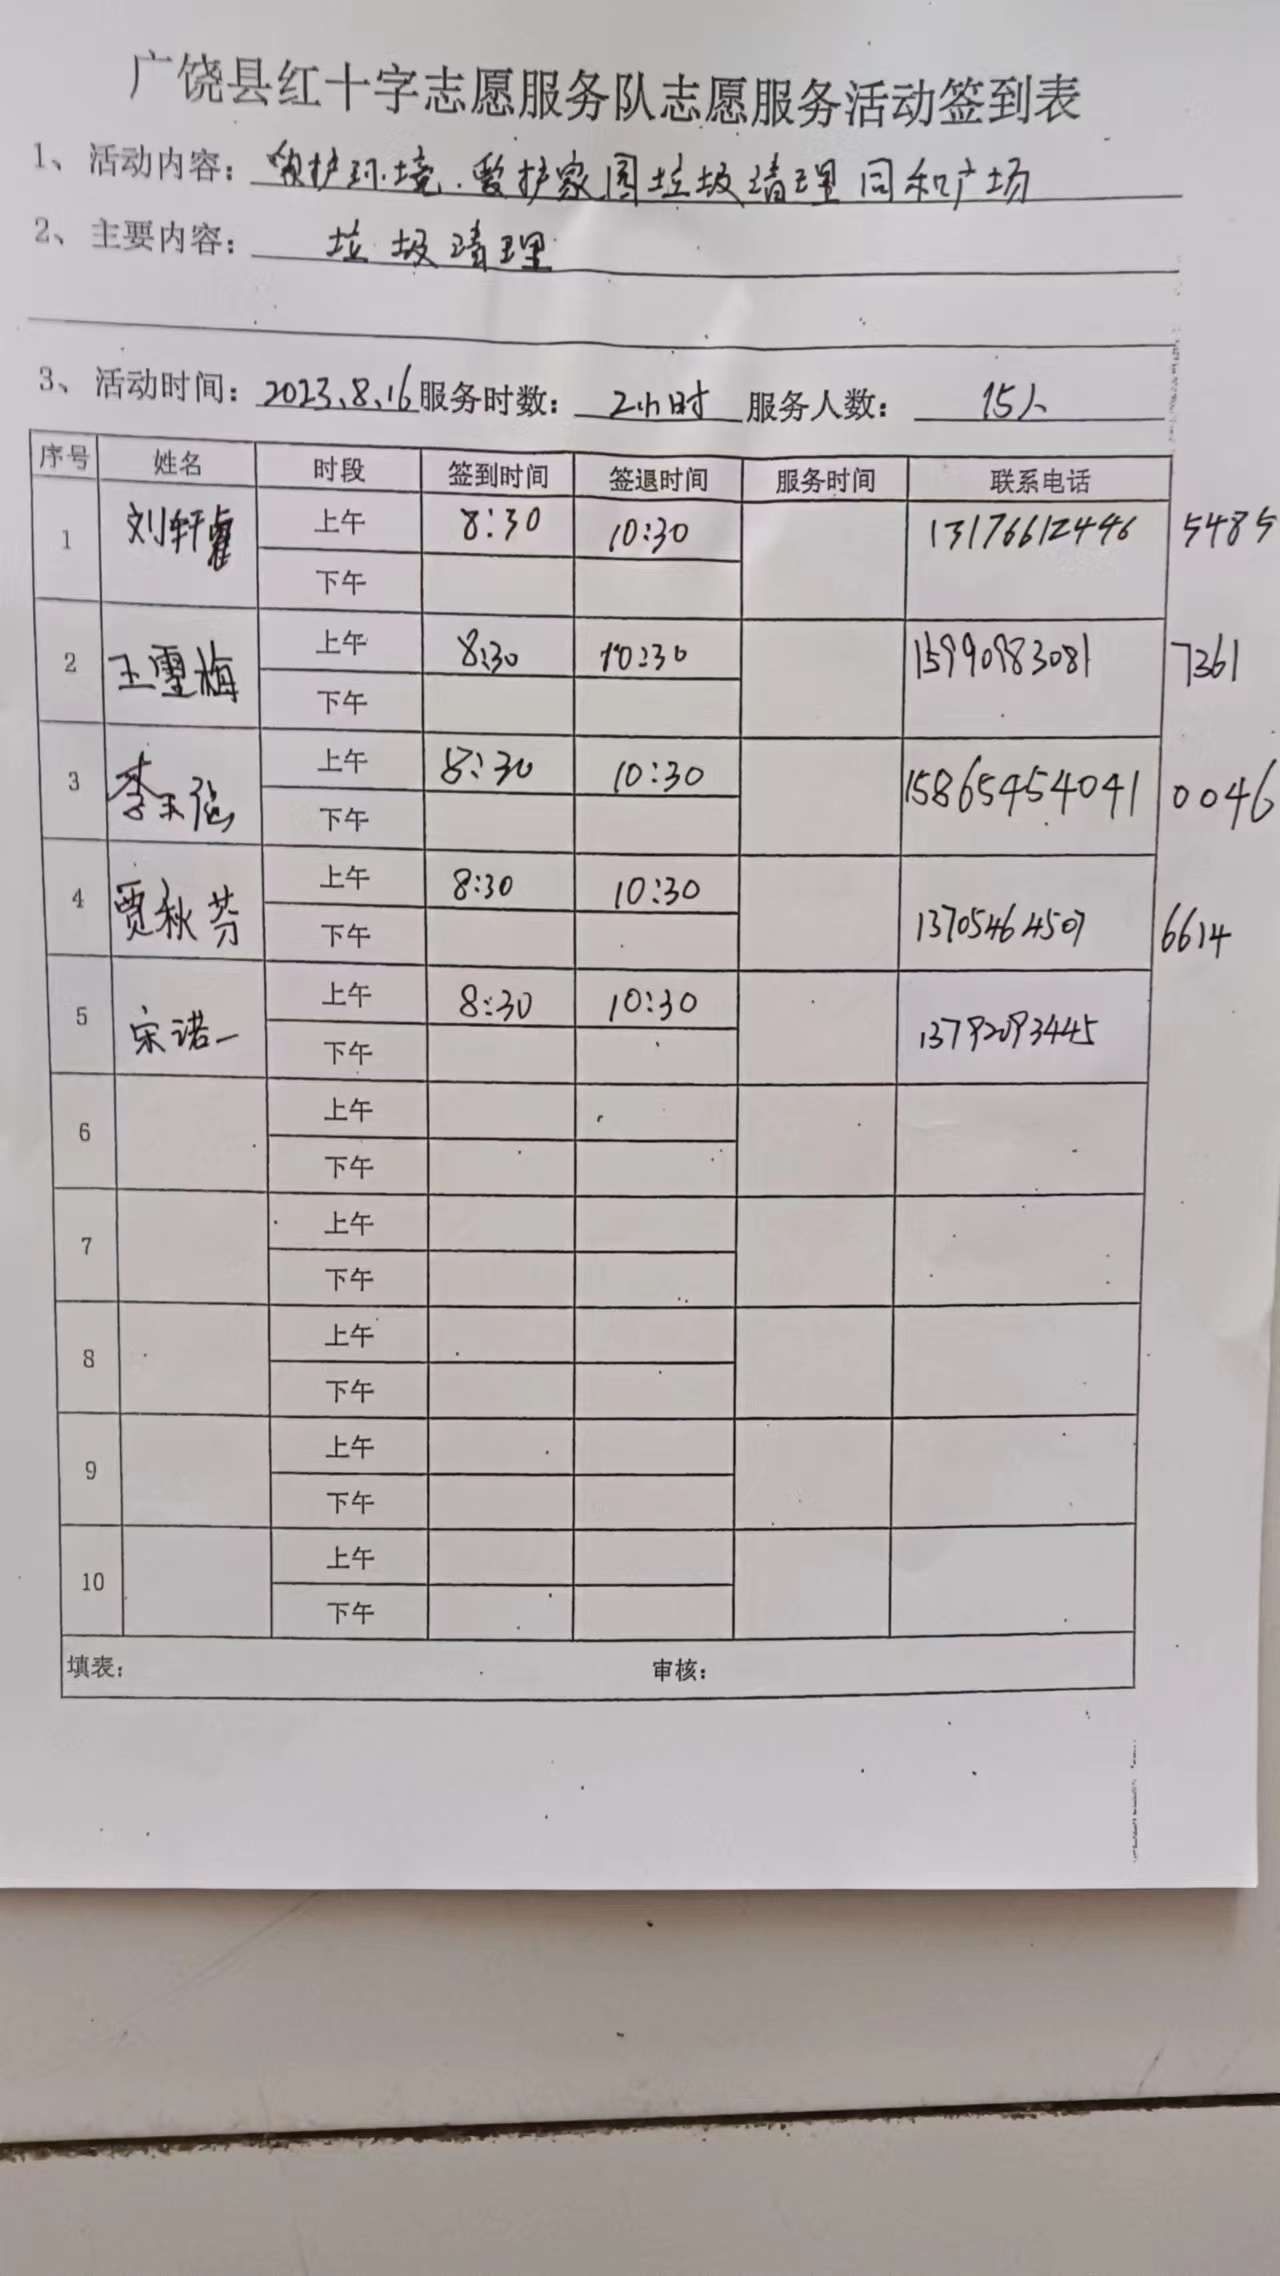 广饶县红十字志愿服务队志愿服务活动签到表
1、活动内容：爱护环境.爱护家园垃圾清理同和广场
2、主要内容：垃圾清理
3、活动时间：2023.8.16服务时数：2小时 服务人数：15人
序号 姓名 时段 签到时间 签退时间 服务时间 联系电话
1 刘轩睿 上午 8:30 10:30 13176612446 5485
下午
2 王玺梅 上午 8:30 10:30 15990983081 7361
下午
3 李 上午 8:30 10:30 15865454041 0046
下午
4 贾秋芬 上午 8:30 10:30 13705464507 6614
下午
5 宋诺一 上午 8:30 10:30 13792093445
下午
6 上午
下午
7 上午
下午
8 上午
下午
9 上午
下午
10 上午
下午
填表： 审核：